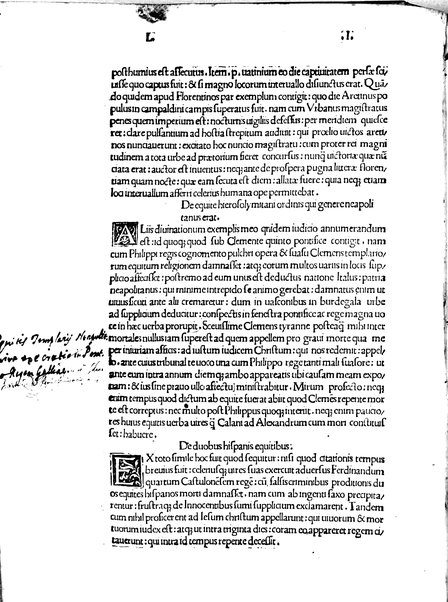 L. .I.
posthumius est assecutus. Item .p. uatinium eo die captiuitatem persæ sci/
uisse quo captus fuit: & si magno locorum interuallo disiunctus erat. Quā/
do quidem apud Florentinos par exemplum contigit: quo die Aretinus po
pulus in campaldini campis superatus fuit. nam cum Vrbanus magistratus
penes quem imperium est: nocturnis uigiliis defessus: per meridiem quiesce
ret: clare pulsantium ad hostia strepitum audiit: qui prœlio uictos areti/
nos nunciauerunt: excitato hoc nuncio magistratu: cum propter rei magni
tudinem a tota urbe ad prætorium fieret concursus: nunq̄ uictoriæ quæ nū
ciata erat: auctor est inuentus: neq; ante de prospera pugna litteræ floren/
tiam quam nocte: quæ eam secuta est diem: allatæ fuere: quia neq; etiam
loci interuallum afferri celerius humana ope permittebat.
De equite hierosolymitani ordinis qui genere neapoli
tanus erat.
ALiis diuinationum exemplis meo quidem iudicio annumerandum
est ad quoq; quod sub Clemente quinto pontifice contigit. nam
cum Philippi regis cognomento pulchri opera & suasu Clemens templario/
rum equitum religionem damnasset: atq; eorum multos uariis in locis sup/
plicio affecisset: postremo ad eum unus est deductus natione Italus: patria
neapolitanus: qui minime intrepido se animo gerebat: damnatus enim ut
uiuus sicuti ante alii cremaretur: dum in uasconibus in burdegala urbe
ad supplicium deducitur: conspectis in fenestra pontifice ac rege magna uo
te in hæc uerba prorupit. Sceuissime Clemens tyranne posteaq̄ mihi inter
mortales nullus iam superest ad quem appellem pro graui morte qua me
per iniuriam afficis: ad iustum iudicem Christum: qui nos redemit: appel/
lo. ante cuius tribunal te uoco una cum Philippo rege tanti mali suasore: ut
ante eam intra annum diemq; ambo appareatis ubi causam meam expo/
nam: & ius sine prauo ullo affectu ministrabitur. Mirum profecto: neq;
enim tempus quod dictum ab equite fuerat abiit quod Clemens repente mor
te est correptus: nec multo post Philippus quoq; interiit. neq; enim paucio/
res huius equitis uerba uires q̄ Calani ad Alexandrum cum mori constituis
set: habuere.
De duobus hispanis equitibus.
EX toto simile hoc fuit quod sequitur: nisi quod citationis tempus
breuius fuit: celeriusq; uires suas exercuit aduersus Ferdinandum
quartum Castulonensem regē: cū. falsis criminibus proditionis du
os equites hispanos mori damnasset. nam cum ab ingenti saxo precipita/
rentur: frustraq; de Innocentibus sumi supplicium exclamarent. Tandem
cum nihil proficerent ad Iesum christum appellarunt: qui uiuorum & mor
tuorum iudex est: atq; ut intra triginta dies: coram eo appareret regem ci/
tauerunt: qui intra id tempus repente decessit.